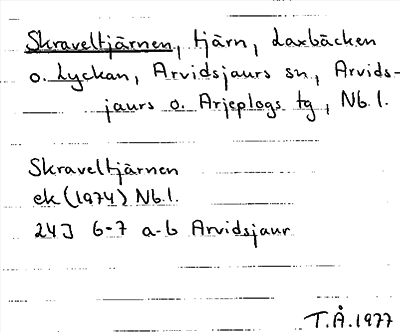 Skraveltjärnen, tjärn, Laxbäcken
o. Lyckan, Arvidsjaurs sn, Arvids-
jaurs o. Arjeplogs tg, Nb.l.
Skraveltjärnen
ek (1974) Nb.l.
24J 6-7 a-b Arvidsjaur
T.Å.1977